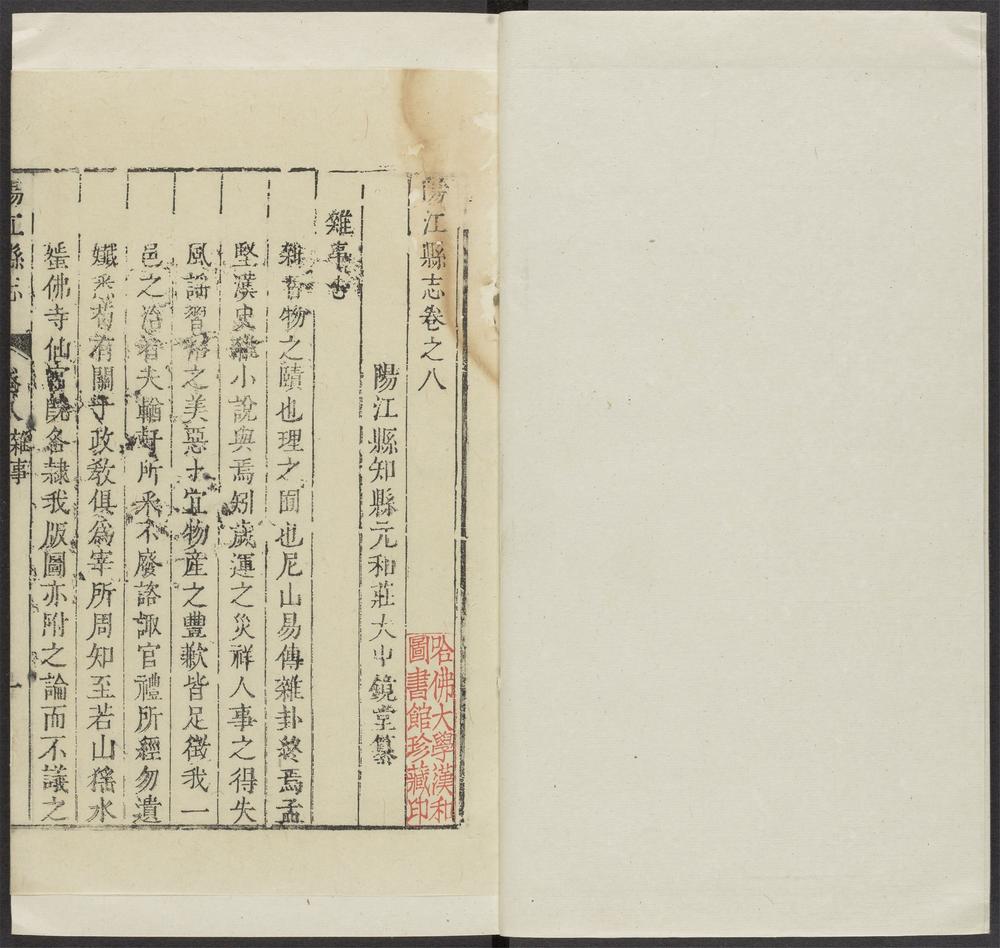 陽江縣志卷之八
陽江縣知縣元和莊大中鏡堂纂
雜事志
雜者物之賾也理之囿也尼山易傳雜卦終焉孟
堅漢史雜小說與焉矧歲運之災祥人事之得失
風謠習俗之美惡土宜物産之豐歉皆足徵我一
邑之治者夫輶軒所采不廢諮諏官禮所經勿遺
孅悉苟有關于政教俱爲宰所周知至若山猺水
蜑佛寺仙宮旣各隷我版圖亦附之論而不議之
陽江縣志
卷八 雜事
一
哈佛大學漢和
圖書館珍藏印